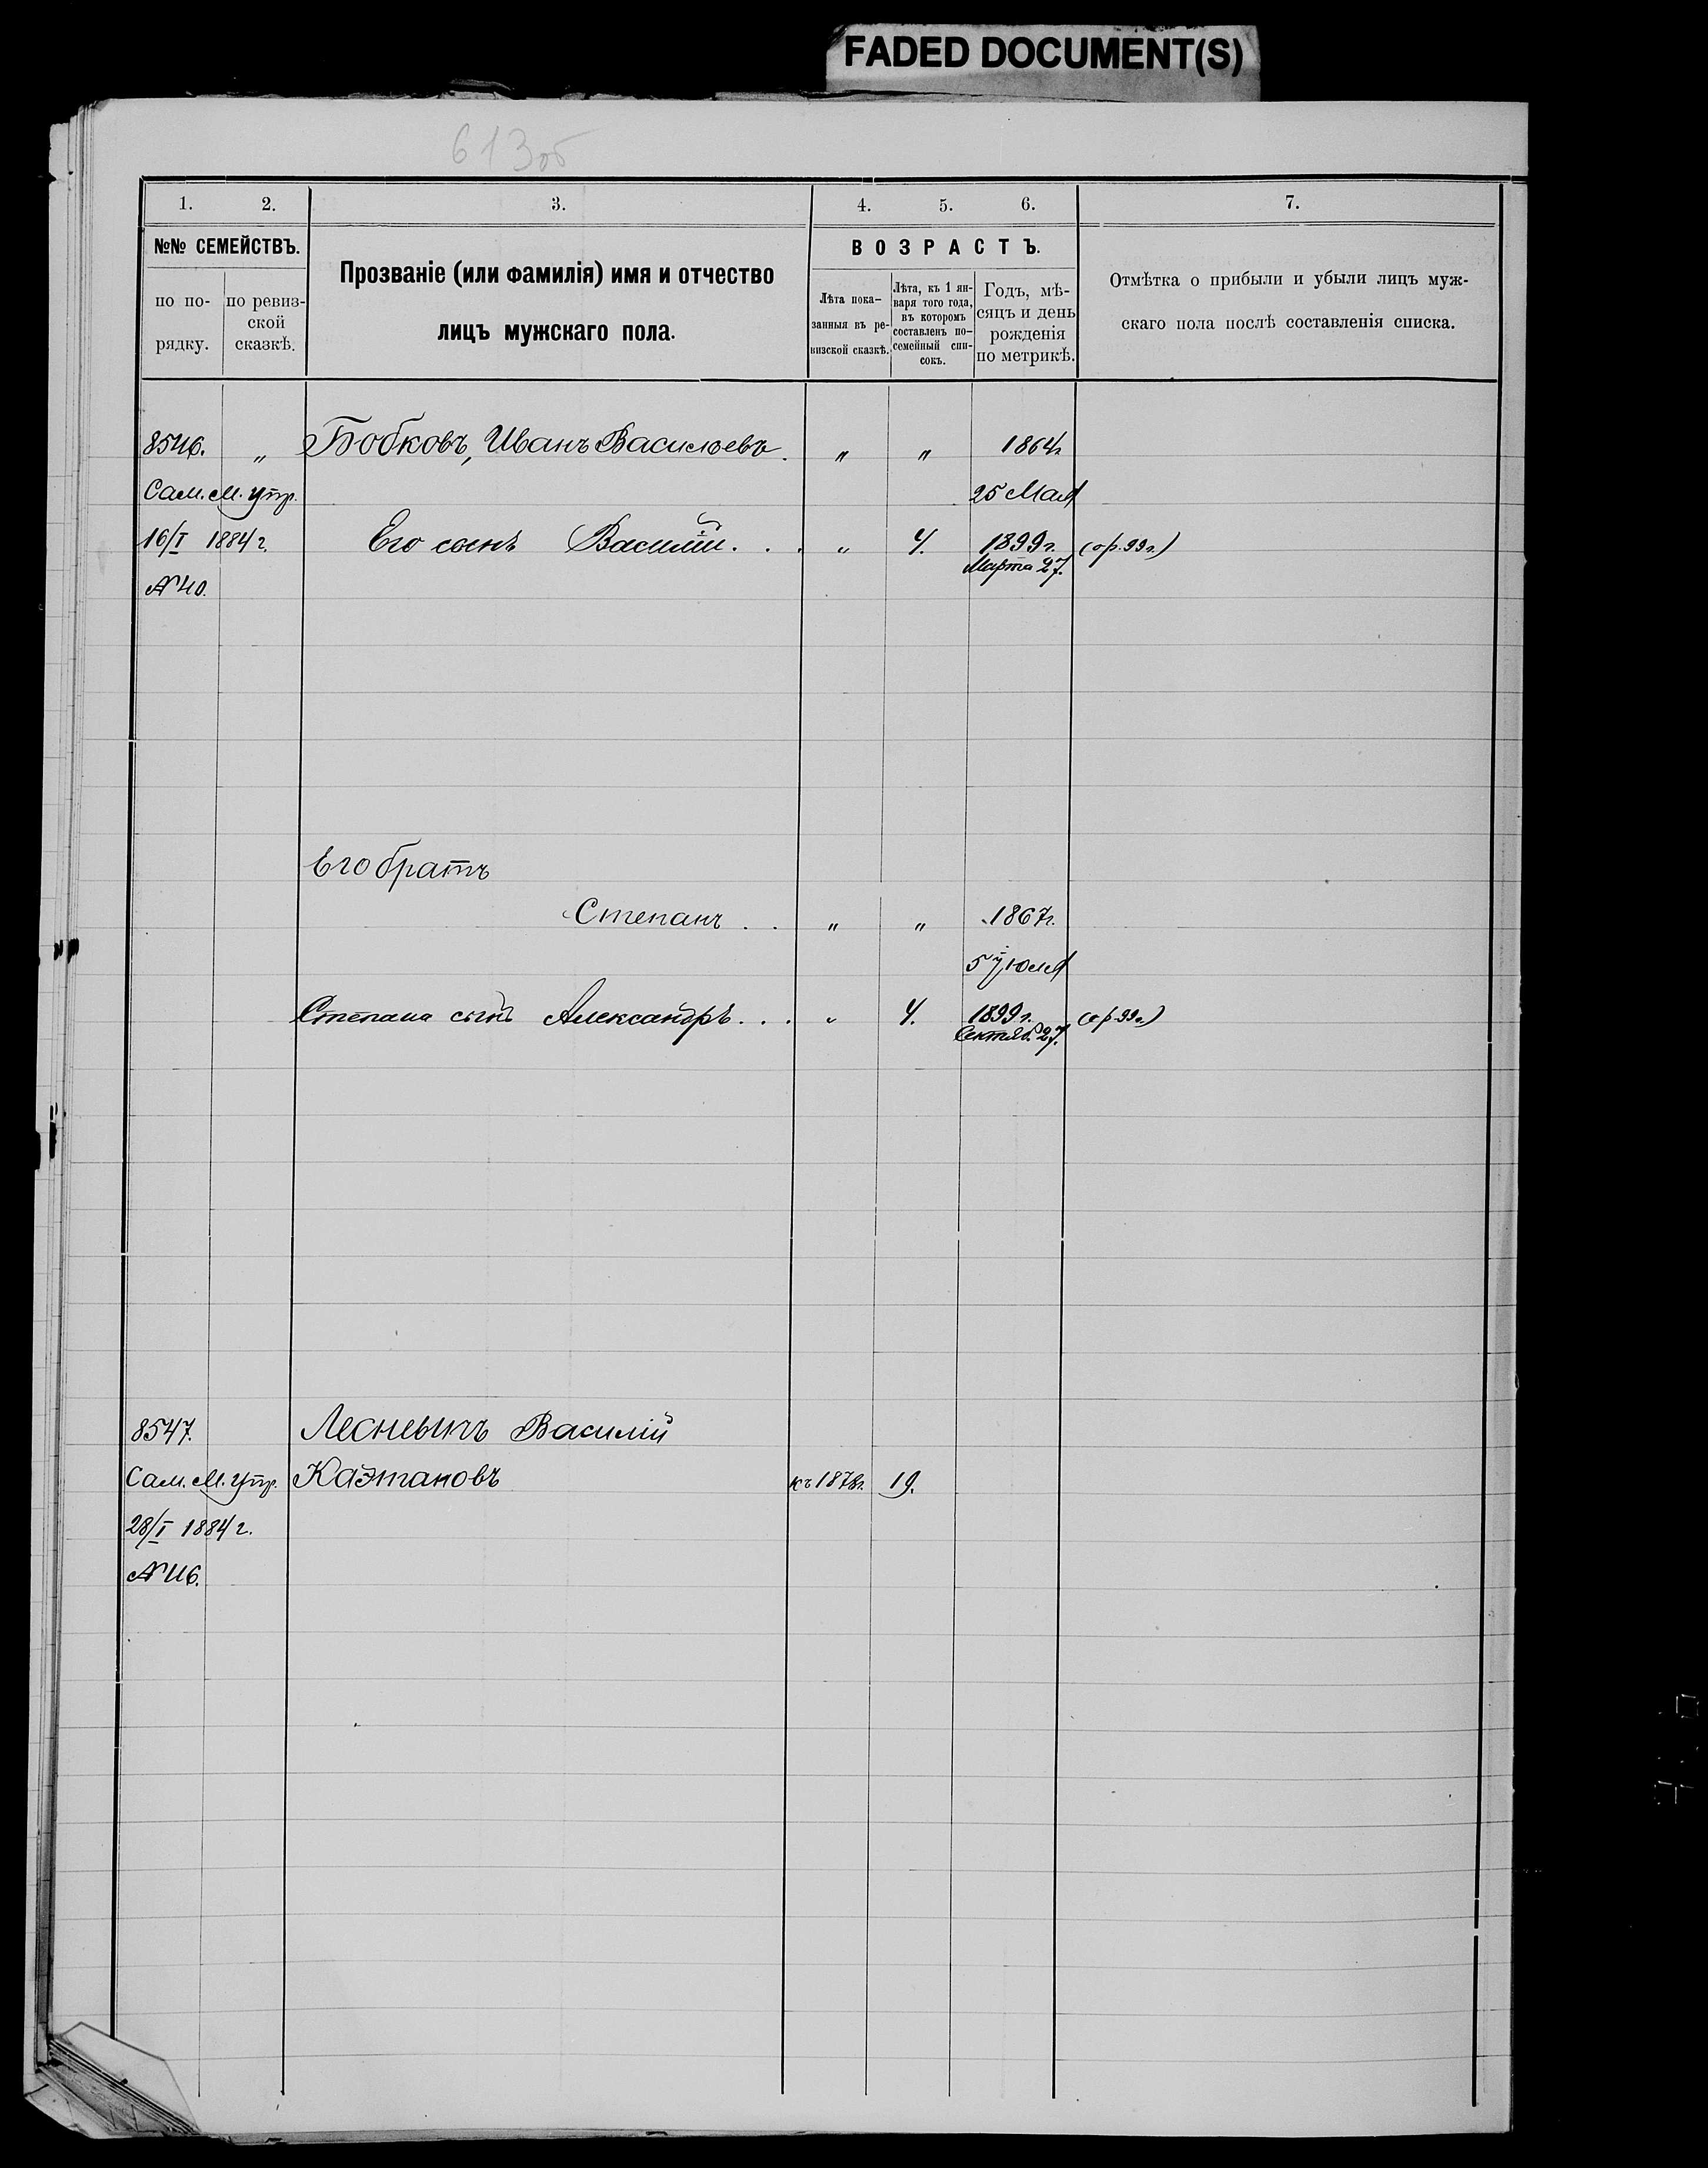 FADED DOCUMENT(S)
613об
1. 2. 3. 4. 5. 6. 7.
№№ СЕМЕЙСТВЪ.
по по-
рядку.
по ревиз-
ской
сказкѣ.
Прозваніе (или фамилія) имя и отчество
лицъ мужскаго пола.
ВОЗРАСТЪ.
Лѣта пока-
занныя въ ре-
визской сказкѣ.
Лѣта, къ 1 ян-
варя того года,
въ которомъ
составленъ по-
семейный спи-
сокъ.
Годъ, мѣ-
сяцъ и день
рожденія
по метрикѣ.
Отмѣтка о прибыли и убыли лицъ муж-
скаго пола послѣ составленія списка.
8546. " Бобковъ, Иванъ Васильевъ. " " 1864г.
Сам. М. Упр. 25 Мая
16/I 1884 г. Его сынъ Василій. . . " 4. 1899г. (ор. 99г.)
Марта 27.
№ 40.
Его братъ
Степанъ . . " " 1867г.
5 Іюля
Степана сынъ Александръ. . . " 4. 1899г. (ор 99г.)
Сентяб. 27.
8547. Лесневичъ Василій
Сам. М. Упр. Каэтановъ къ 1878г. 19.
28/I 1884 г.
№ 46.